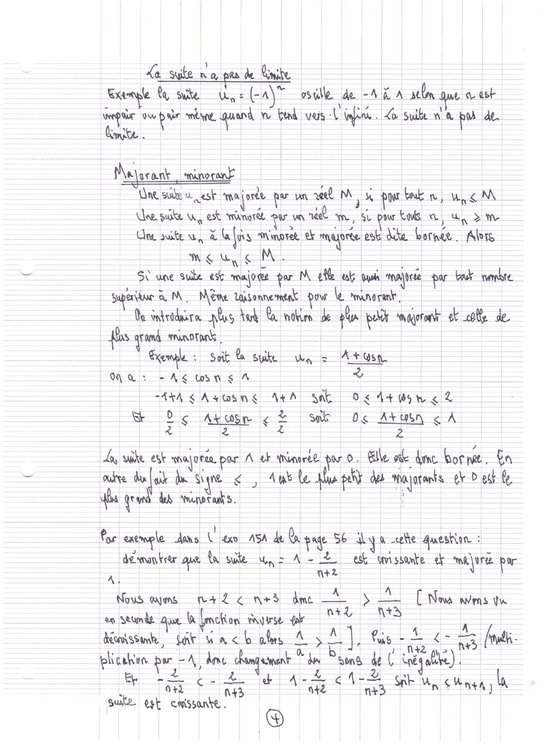 La suite n'a pas de limite
Exemple la suite uₙ = (-1)ⁿ oscille de -1 à 1 selon que n est
impair ou pair même quand n tend vers l'infini. La suite n'a pas de
limite.
Majorant, minorant
Une suite uₙ est majorée par un réel M, si pour tout n, uₙ ⩽ M
Une suite uₙ est minorée par un réel m, si pour touts n, uₙ ⩾ m
Une suite uₙ à la fois minorée et majorée est dite bornée. Alors
m ⩽ uₙ ⩽ M.
Si une suite est majorée par M elle est aussi majorée par tout nombre
supérieur à M. Même raisonnement pour le minorant.
On introduira plus tard la notion de plus petit majorant et celle de
plus grand minorant.
Exemple : soit la suite uₙ = (1 + cos n)/2
on a : -1 ⩽ cos n ⩽ 1
-1+1 ⩽ 1 + cos n ⩽ 1+1 soit 0 ⩽ 1 + cos n ⩽ 2
Et 0/2 ⩽ (1 + cos n)/2 ⩽ 2/2 soit 0 ⩽ (1 + cos n)/2 ⩽ 1
La suite est majorée par 1 et minorée par 0. Elle est donc bornée. En
outre du fait du signe ⩽, 1 est le plus petit des majorants et 0 est le
plus grand des minorants.
Par exemple dans l'exo 151 de la page 56 il y a cette question :
démontrer que la suite uₙ = 1 - 2/(n+2) est croissante et majorée par
1.
Nous avons n+2 < n+3 donc 1/(n+2) > 1/(n+3) [Nous avons vu
en seconde que la fonction inverse est
décroissante, soit si a < b alors 1/a > 1/b]. Puis -1/(n+2) < -1/(n+3) (multi-
plication par -1, donc changement du sens de l'inégalité).
Et -2/(n+2) < -2/(n+3) et 1 - 2/(n+2) < 1 - 2/(n+3) soit uₙ < uₙ₊₁, la
suite est croissante.
4